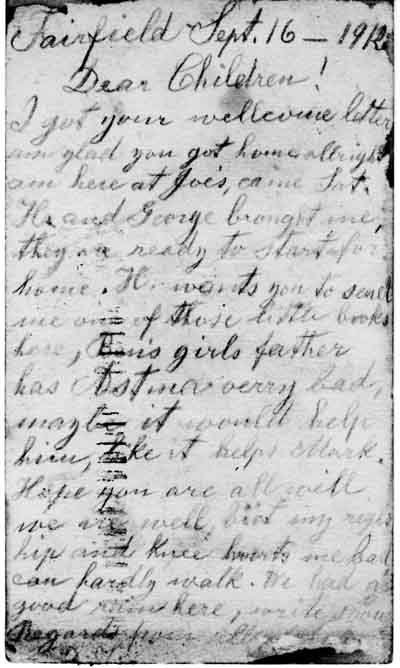 Fairfield Sept. 16 – 1912
Dear Children!
I got your wellcome letter
am glad you got home allright
am here at Joe's, came Sat.
H. and George brought me,
they are ready to start for
home. H. wants you to send
me one of those little books
here, girls father
has Astma verry bad,
maybe it would help
him, like it helps Mark.
Hope you are all well
we are well, but my right
hip and knee hourts me bad
can hardly walk. We had a
good rain here, write soon
Regards from all